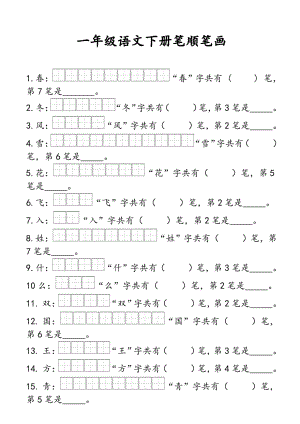 一年级语文下册笔顺笔画
1. 春: “春”字共有（ ）笔,
第 7 笔是_____。
2. 冬: “冬”字共有（ ）笔, 第 3 笔是____。
3. 风: “风”字共有（ ）笔, 第 2 笔是____。
4. 雪: “雪”字共有（ ）
笔, 第 6 笔是_____。
5. 花: “花”字共有（ ）笔, 第 5
笔是_____。
6. 飞: “飞”字共有（ ）笔, 第 2 笔是____。
7. 入: “入”字共有（ ）笔, 第 2 笔是____。
8. 姓: “姓”字共有（ ）笔, 第
7 笔是_____。
9. 什: “什”字共有（ ）笔, 第 3 笔是____。
10 么: “么”字共有（ ）笔, 第 2 笔是____。
11. 双: “双”字共有（ ）笔, 第 2 笔是____。
12. 国: “国”字共有（ ）笔, 第 6
笔是_____。
13. 王: “王”字共有（ ）笔, 第 3 笔是____。
14. 方: “方”字共有（ ）笔, 第 3 笔是____。
15. 青: “青”字共有（ ）笔,
第 5 笔是_____。